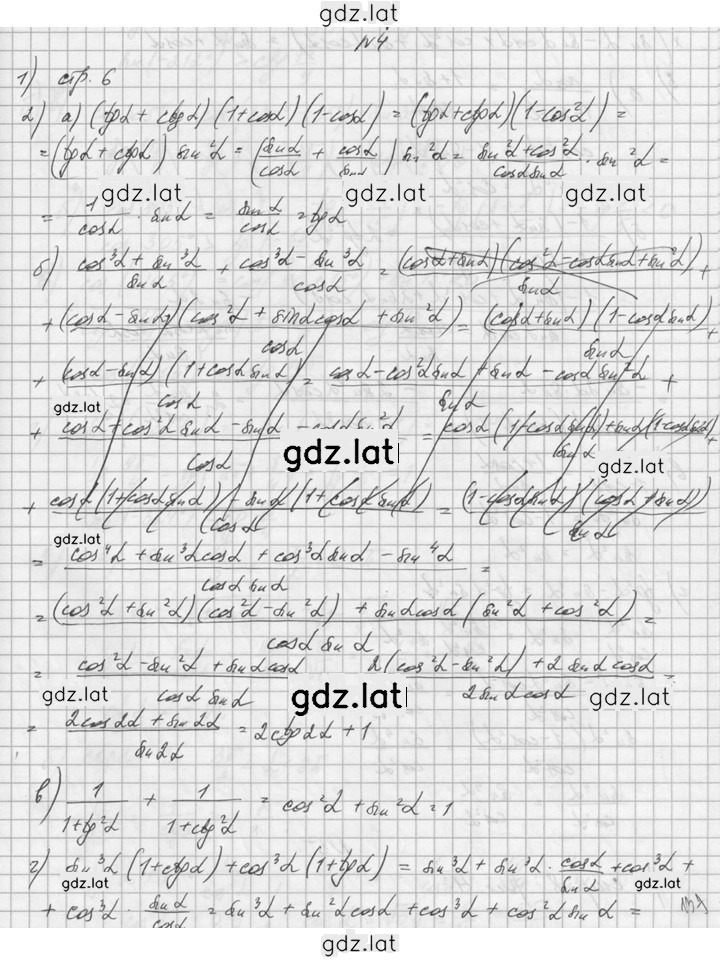 gdz.lat
№4
1) стр. 6
2) а) (tgα + ctgα)(1+cosα)(1-cosα) = (tgα+ctgα)(1-cos²α) =
= (tgα + ctgα) sin²α = (sinα/cosα + cosα/sinα) sin²α = (sin²α+cos²α)/(cosα sinα) · sin²α =
gdz.lat gdz.lat gdz.lat
= 1/cosα · sinα = sinα/cosα = tgα
б) (cos³α + sin³α)/sinα + (cos³α - sin³α)/cosα = (cosα+sinα)(cos²α-cosα sinα+sin²α)/sinα +
+ (cosα - sinα)(cos²α + sinα cosα + sin²α)/cosα = (cosα+sinα)(1-cosα sinα)/sinα +
+ (cosα-sinα)(1+cosα sinα)/cosα = (cosα-cos²α sinα + sinα - cosα sin²α)/sinα +
gdz.lat
+ (cosα + cos²α sinα - sinα - cosα sin²α)/cosα = (cosα(1-cosα sinα)+sinα(1-cosα sinα))/sinα +
gdz.lat
gdz.lat
+ (cosα(1+cosα sinα) - sinα(1+cosα sinα))/cosα = (1-cosα sinα)(cosα + sinα)/sinα
gdz.lat
= (cos⁴α + sin³α cosα + cos³α sinα - sin⁴α)/(cosα sinα) =
= ((cos²α + sin²α)(cos²α - sin²α) + sinα cosα(sin²α + cos²α))/(cosα sinα) =
= (cos²α - sin²α + sinα cosα)/(cosα sinα) (2(cos²α - sin²α) + 2 sinα cosα)/(2 sinα cosα) =
gdz.lat gdz.lat gdz.lat
= (2cos2α + sin2α)/sin2α = 2ctg2α + 1
в) 1/(1+tg²α) + 1/(1+ctg²α) = cos²α + sin²α = 1
г) sin³α(1+ctgα) + cos³α(1+tgα) = sin³α + sin³α · cosα/sinα + cos³α +
gdz.lat gdz.lat
+ cos³α · sinα/cosα = sin³α + sin²α cosα + cos³α + cos²α sinα =
gdz.lat